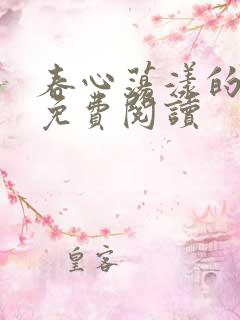 春心蕩漾的
免費閱讀
皇客